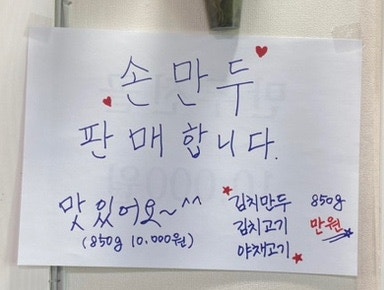 손만두
판매합니다.
맛있어요~^^
(850g 10.000원)
김치만두 850g
김치고기 만원
야채고기